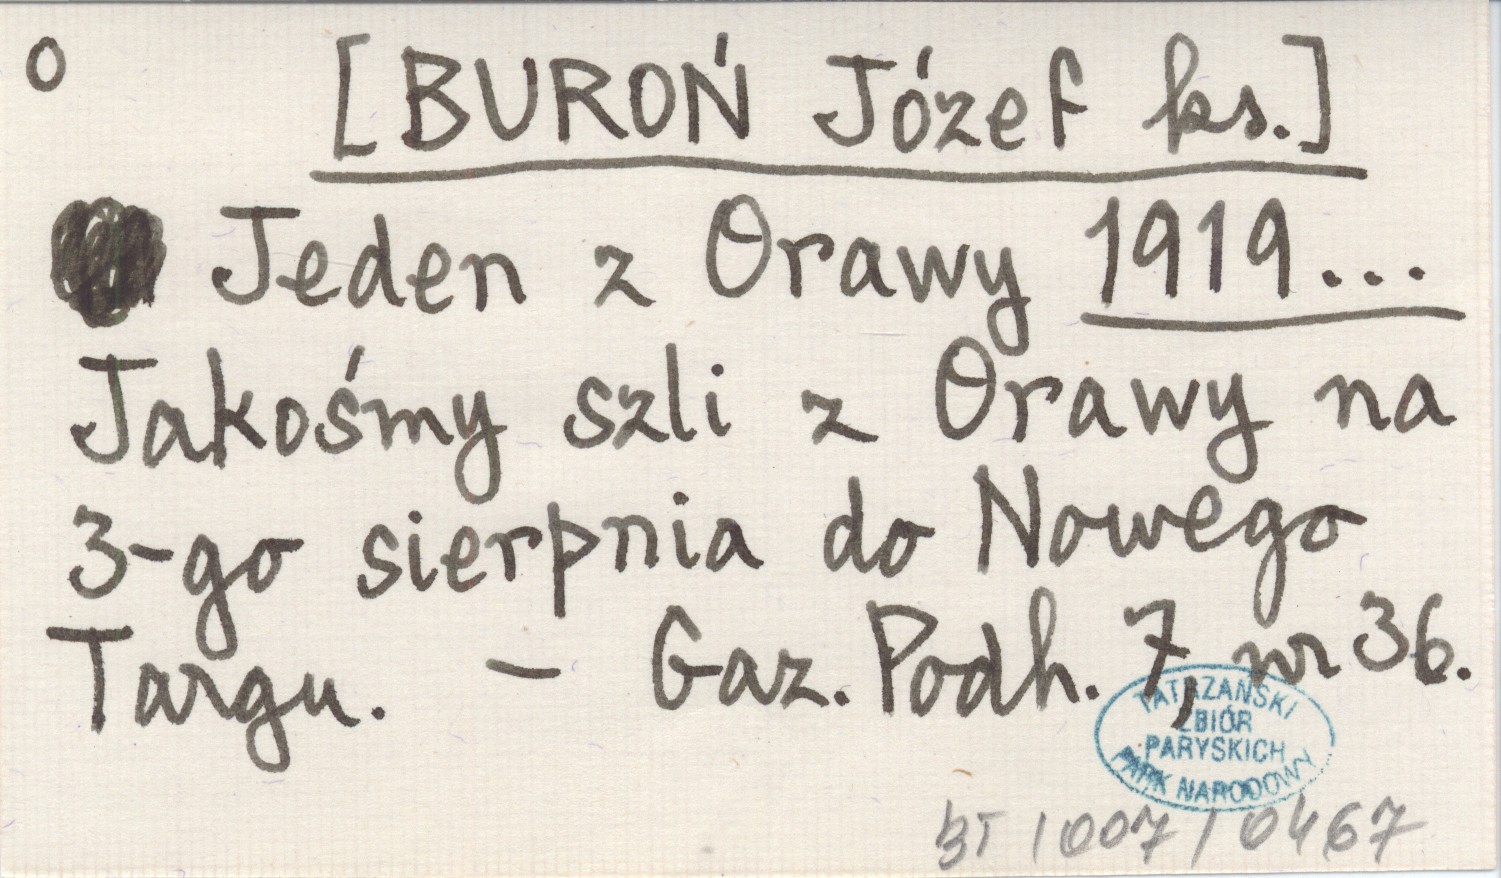 O
[BUROŃ Józef ks.]
Jeden z Orawy 1919...
Jakośmy szli z Orawy na
3-go sierpnia do Nowego
Targu. – Gaz. Podh. 7, nr 36.
TATRZAŃSKI
ZBIÓR
PARYSKICH
PARK NARODOWY
/ 007 / 0467